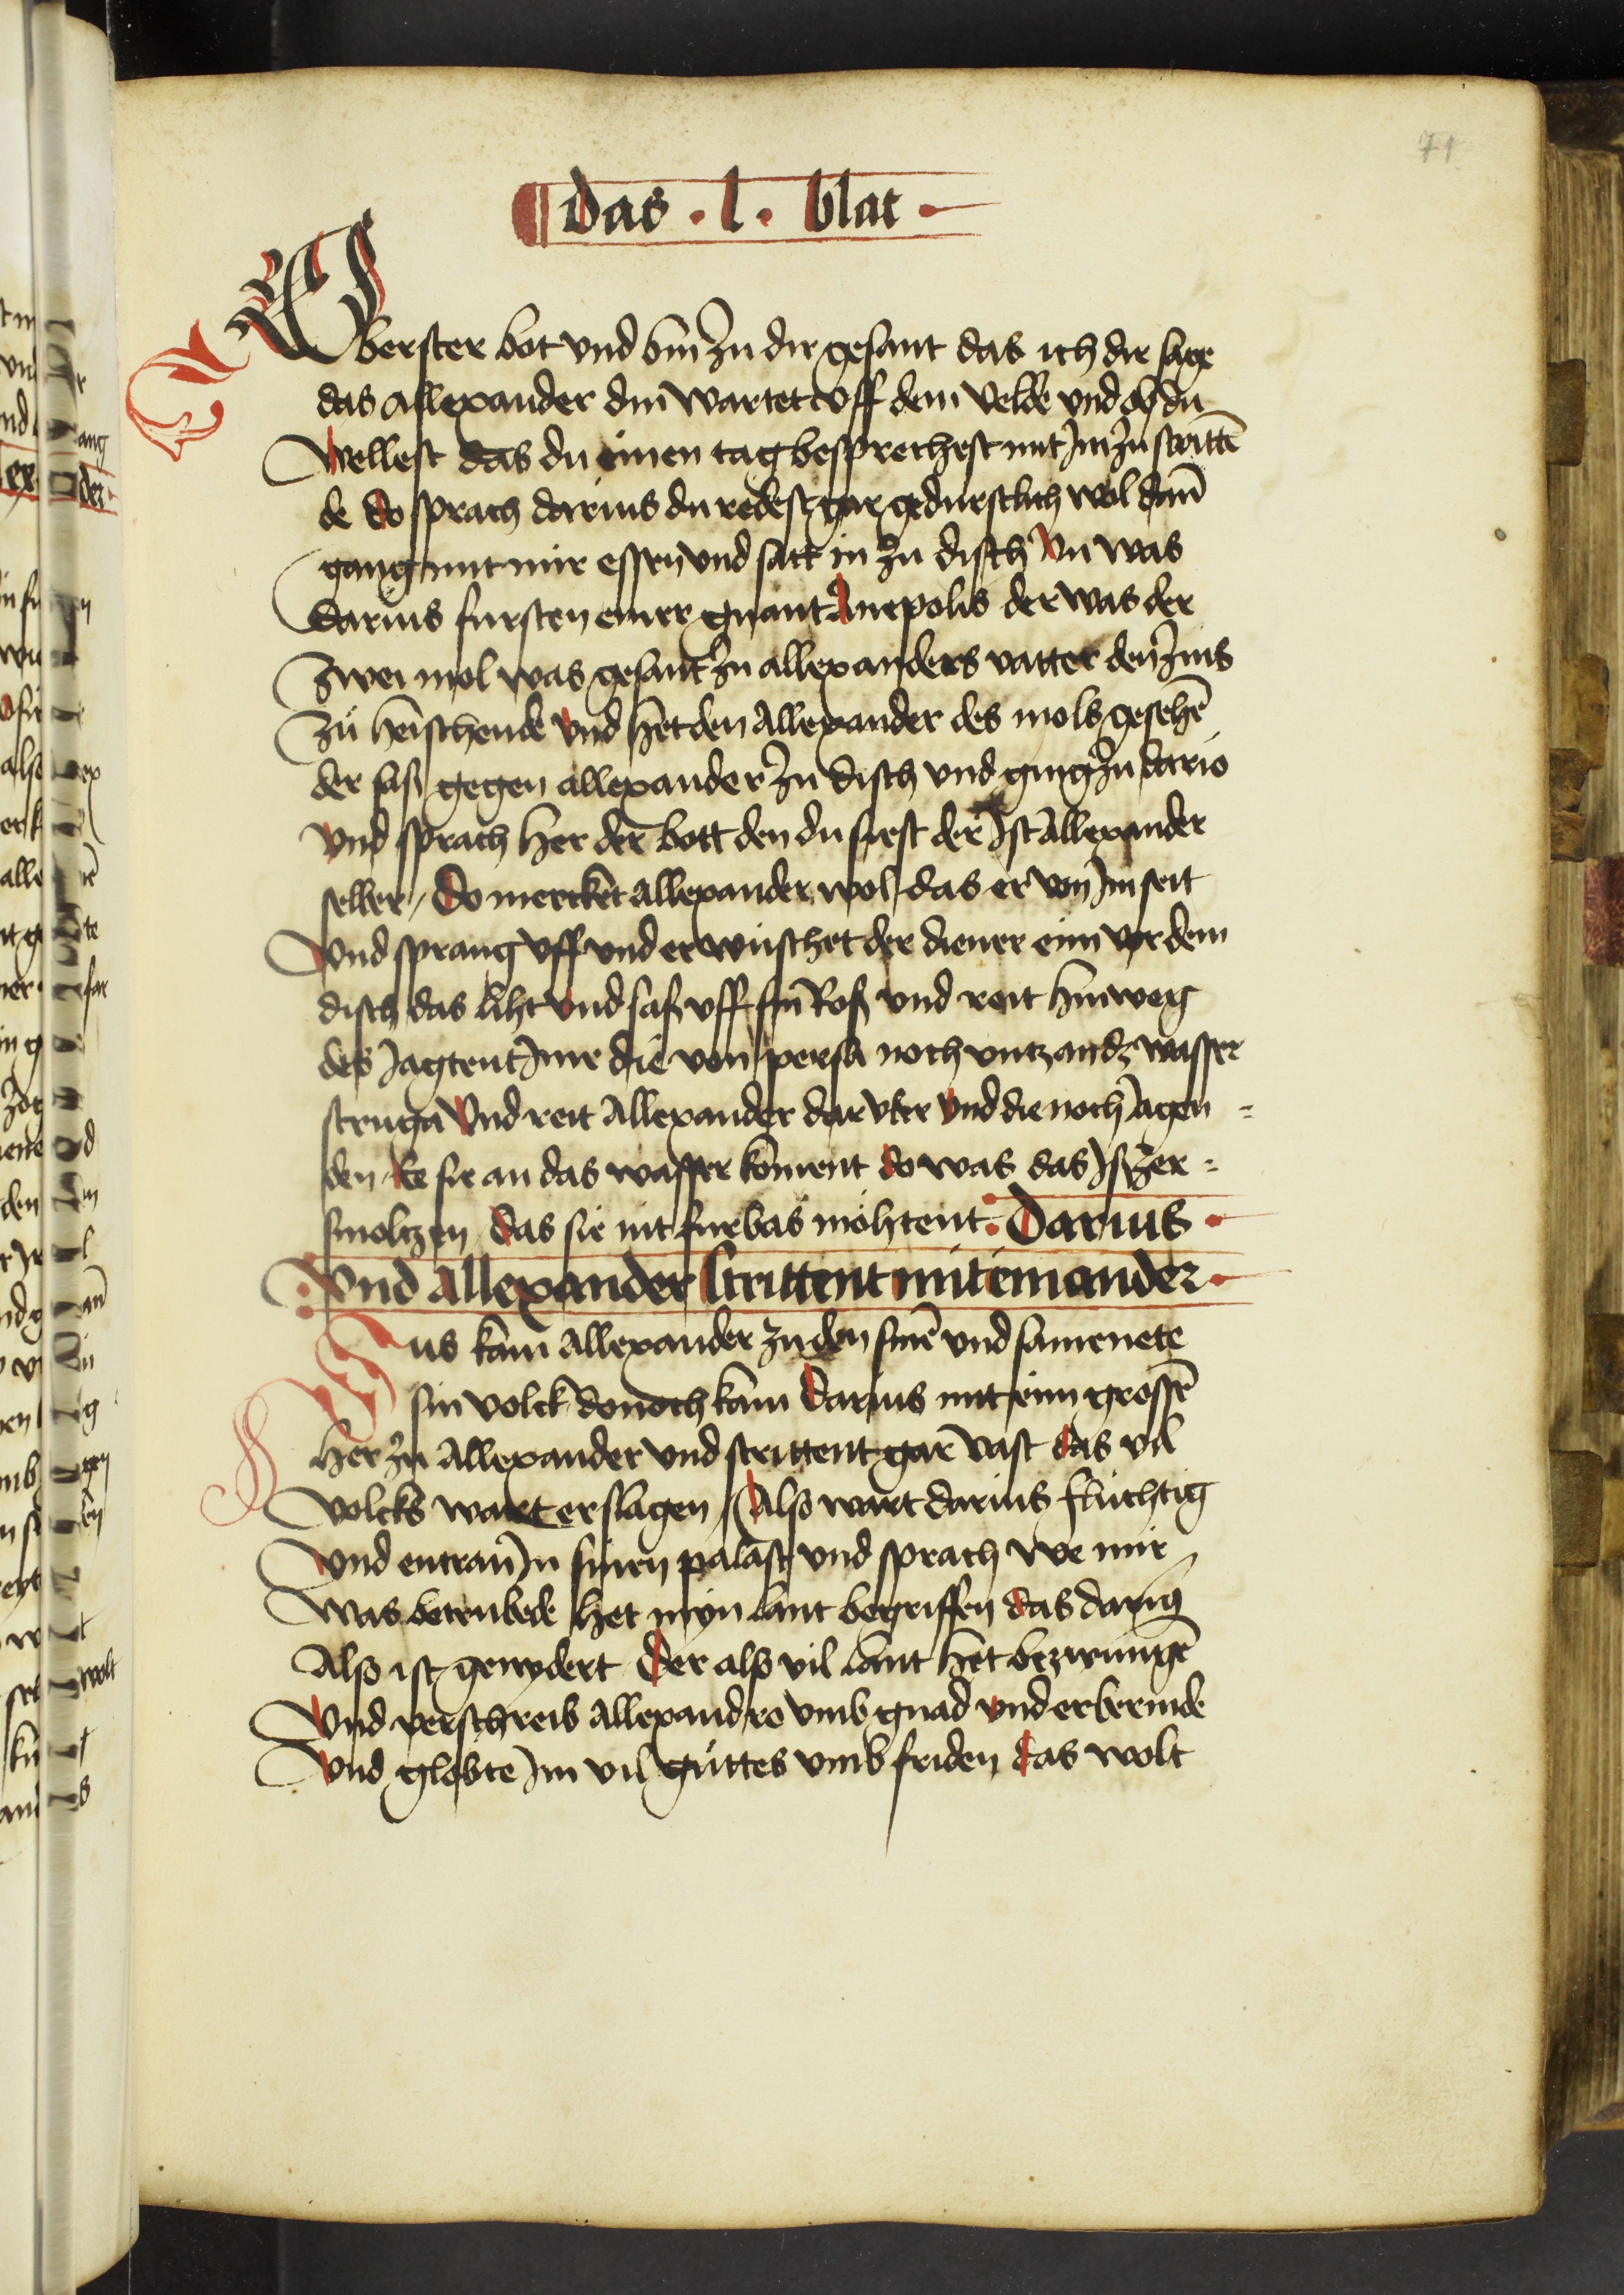 71
Das . l . blat .
Vberster bot vnd bin zu dir gesant das ich dir sage
das allexander din wartet vff dem velde vnd ob du
wellest das du einen tag besprechest mit im zu strittē
de do sprach darius du redest gar gedurstlich wol dan̄
gang mit mir essen vnd satt in zu disch Nu was
darius fursten einer gnant Anepolis der was der
zwei mol was gesant zu allexanders vatter den zins
zu heischende vnd het den Allexander des mols gesehē
der sas gegen allexander zu disch vnd ging zu dario
vnd sprach her der bott den du siest der ist Allexander
selber / Do mercket allexander wol das er von im seit
vnd sprang vff vnd erwuschet der diener eim vor dem
disch das liht vnd sas vff sin Ros vnd reit hinweg
des jagtent ime die von persia noch vntz an dz wasser
struga Vnd reit Allexander dar vber vnd die noch jagen =
den Ee sie an das wasser koment do was das Jsz zer =
smoltzen Das sie nit furbas mohtent : Darius .
Vnd Allexander strittent mit einander .
Sus kam Allexander zu den sinē vnd samenete
sin volck donoch kam Darius mit eim grossē
her zu Allexander vnd strittent gar vast das vil
volcks wart erslagen / Also wart darius fluchtig
vnd entran In sinen palast vnd sprach we mir
was betrubede het myn lant begriffen das darius
Also ist genydert Der also vil lant het bezwungē
Vnd verschreib Allexandro vmb gnad vnd erbermde
Vnd globte im vil guttes vmb friden das wolt